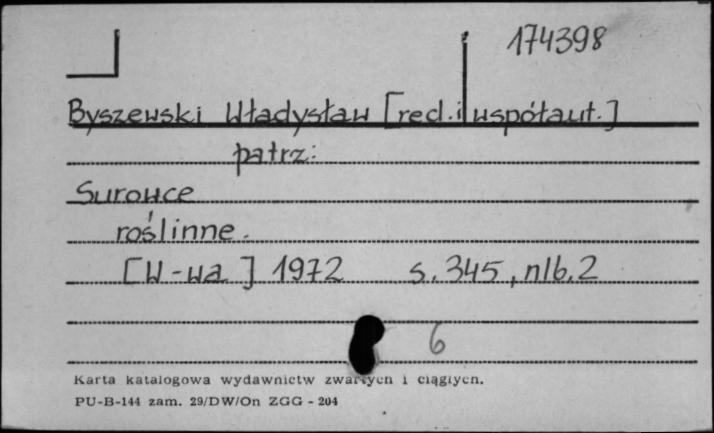 174398
Byszewski Władysław [red. i współaut.]
patrz:
Surowce
roślinne.
[W-wa] 1972 s. 345, nlb. 2
6
Karta katalogowa wydawnictw zwartych i ciągłych.
PU-B-144 zam. 29/DW/On ZGG - 204